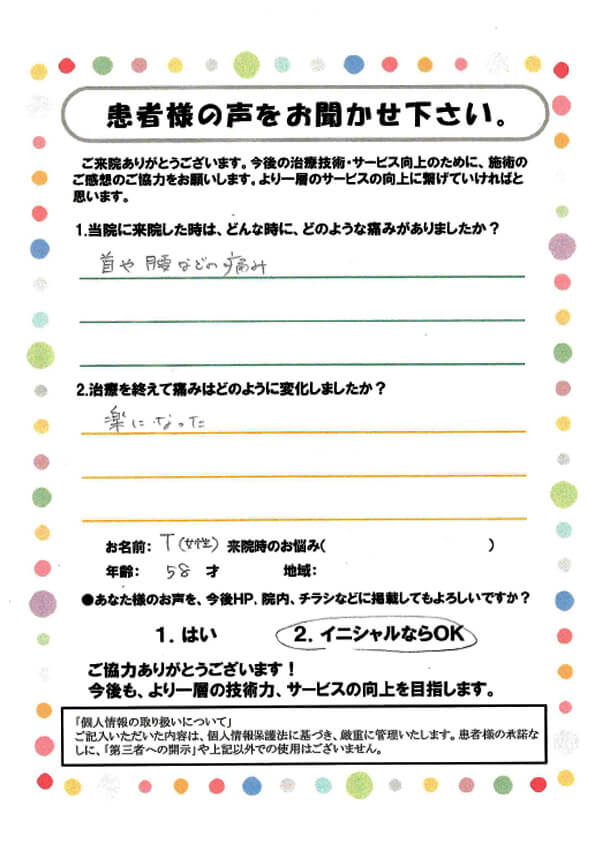 患者様の声をお聞かせ下さい。
ご来院ありがとうございます。今後の治療技術・サービス向上のために、施術の
ご感想のご協力をお願いします。より一層のサービスの向上に繋げていければと
思います。
1.当院に来院した時は、どんな時に、どのような痛みがありましたか？
首や腰などの痛み
2.治療を終えて痛みはどのように変化しましたか？
楽になった
お名前： T(女性) 来院時のお悩み( )
年齢： 58 才 地域：
●あなた様のお声を、今後HP．院内、チラシなどに掲載してもよろしいですか？
1. はい 2. イニシャルならOK
ご協力ありがとうございます！
今後も、より一層の技術力、サービスの向上を目指します。
「個人情報の取り扱いについて」
ご記入いただいた内容は、個人情報保護法に基づき、厳重に管理いたします。患者様の承諾な
しに、「第三者への開示」や上記以外での使用はございません。